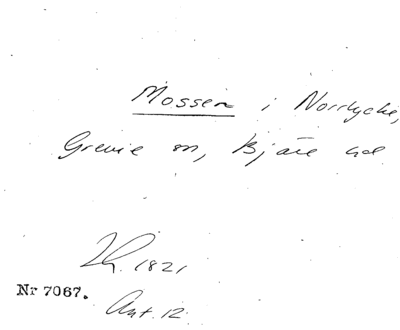 Mossen i Norrlycke,
Grevie sn, Bjäre hd
1821
Nr 7067.
Ant. 12